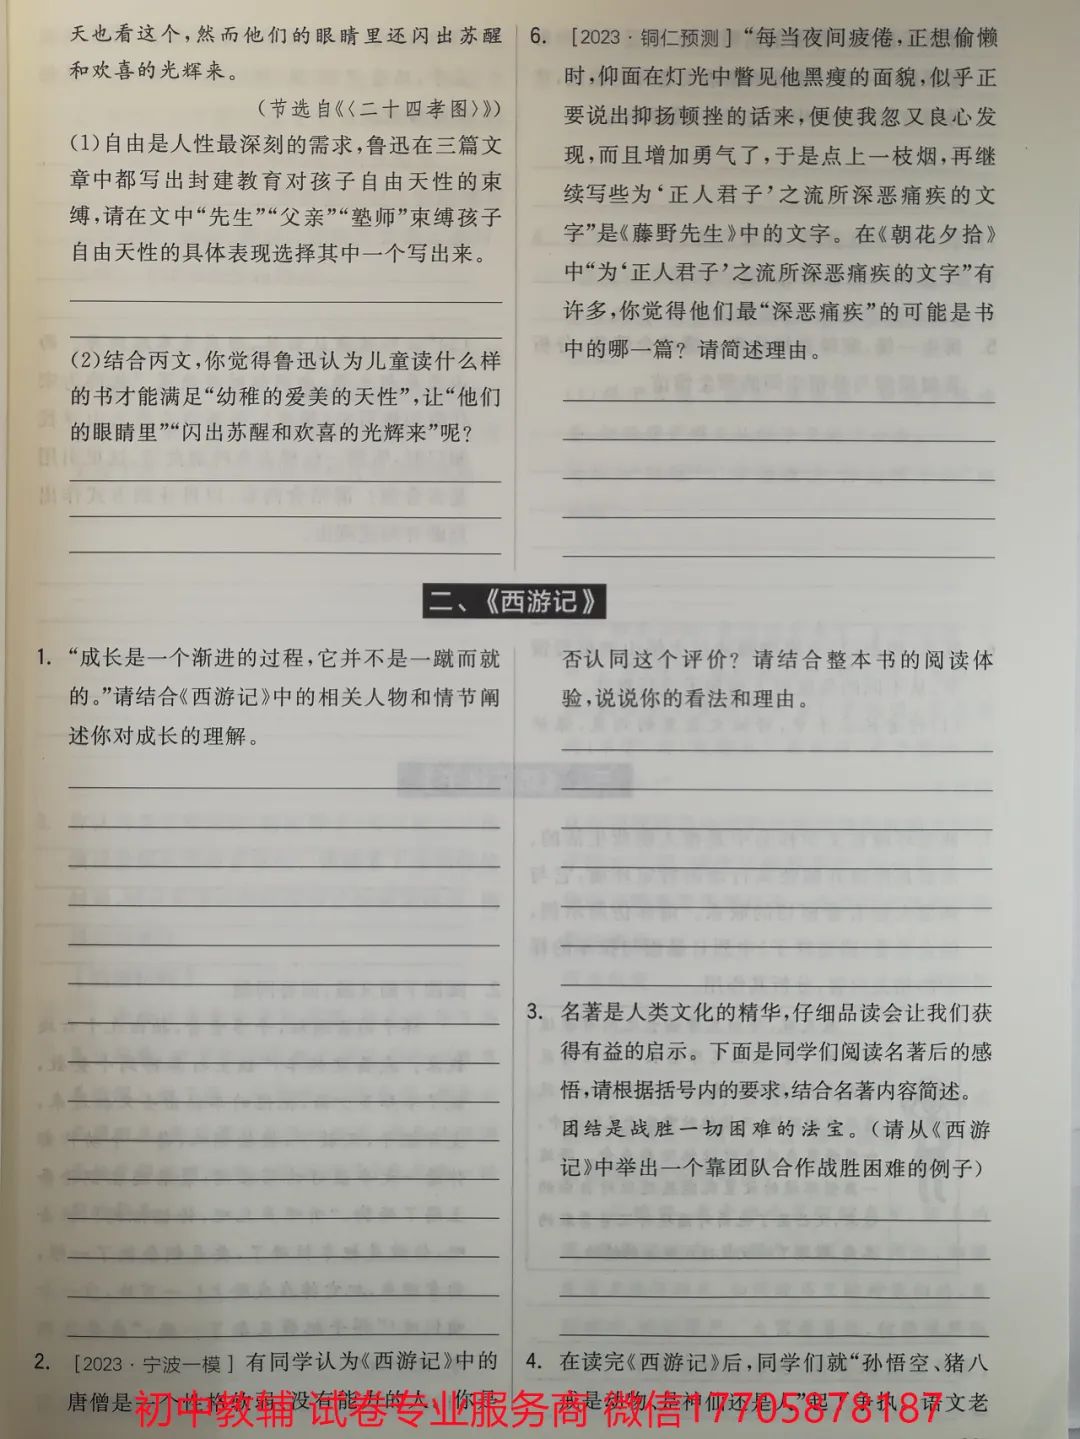 天也看这个，然而他们的眼睛里还闪出苏醒
和欢喜的光辉来。
（节选自《〈二十四孝图〉》）
(1)自由是人性最深刻的需求，鲁迅在三篇文
章中都写出封建教育对孩子自由天性的束
缚，请在文中“先生”“父亲”“塾师”束缚孩子
自由天性的具体表现选择其中一个写出来。
(2)结合丙文，你觉得鲁迅认为儿童读什么样
的书才能满足“幼稚的爱美的天性”，让“他们
的眼睛里”“闪出苏醒和欢喜的光辉来”呢？
6. [2023·铜仁预测]“每当夜间疲倦，正想偷懒
时，仰面在灯光中瞥见他黑瘦的面貌，似乎正
要说出抑扬顿挫的话来，便使我忽又良心发
现，而且增加勇气了，于是点上一枝烟，再继
续写些为‘正人君子’之流所深恶痛疾的文
字”是《藤野先生》中的文字。在《朝花夕拾》
中“为‘正人君子’之流所深恶痛疾的文字”有
许多，你觉得他们最“深恶痛疾”的可能是书
中的哪一篇？请简述理由。
二、《西游记》
1. “成长是一个渐进的过程，它并不是一蹴而就
的。”请结合《西游记》中的相关人物和情节阐
述你对成长的理解。
2. [2023·宁波一模]有同学认为《西游记》中的
唐僧是一个性格软弱、没有能力的人，你是
否认同这个评价？请结合整本书的阅读体
验，说说你的看法和理由。
3. 名著是人类文化的精华，仔细品读会让我们获
得有益的启示。下面是同学们阅读名著后的感
悟，请根据括号内的要求，结合名著内容简述。
团结是战胜一切困难的法宝。（请从《西游
记》中举出一个靠团队合作战胜困难的例子）
4. 在读完《西游记》后，同学们就“孙悟空、猪八
戒是动物、是神仙还是人”起了争执。语文老
初中教辅 试卷专业服务商 微信17705878187